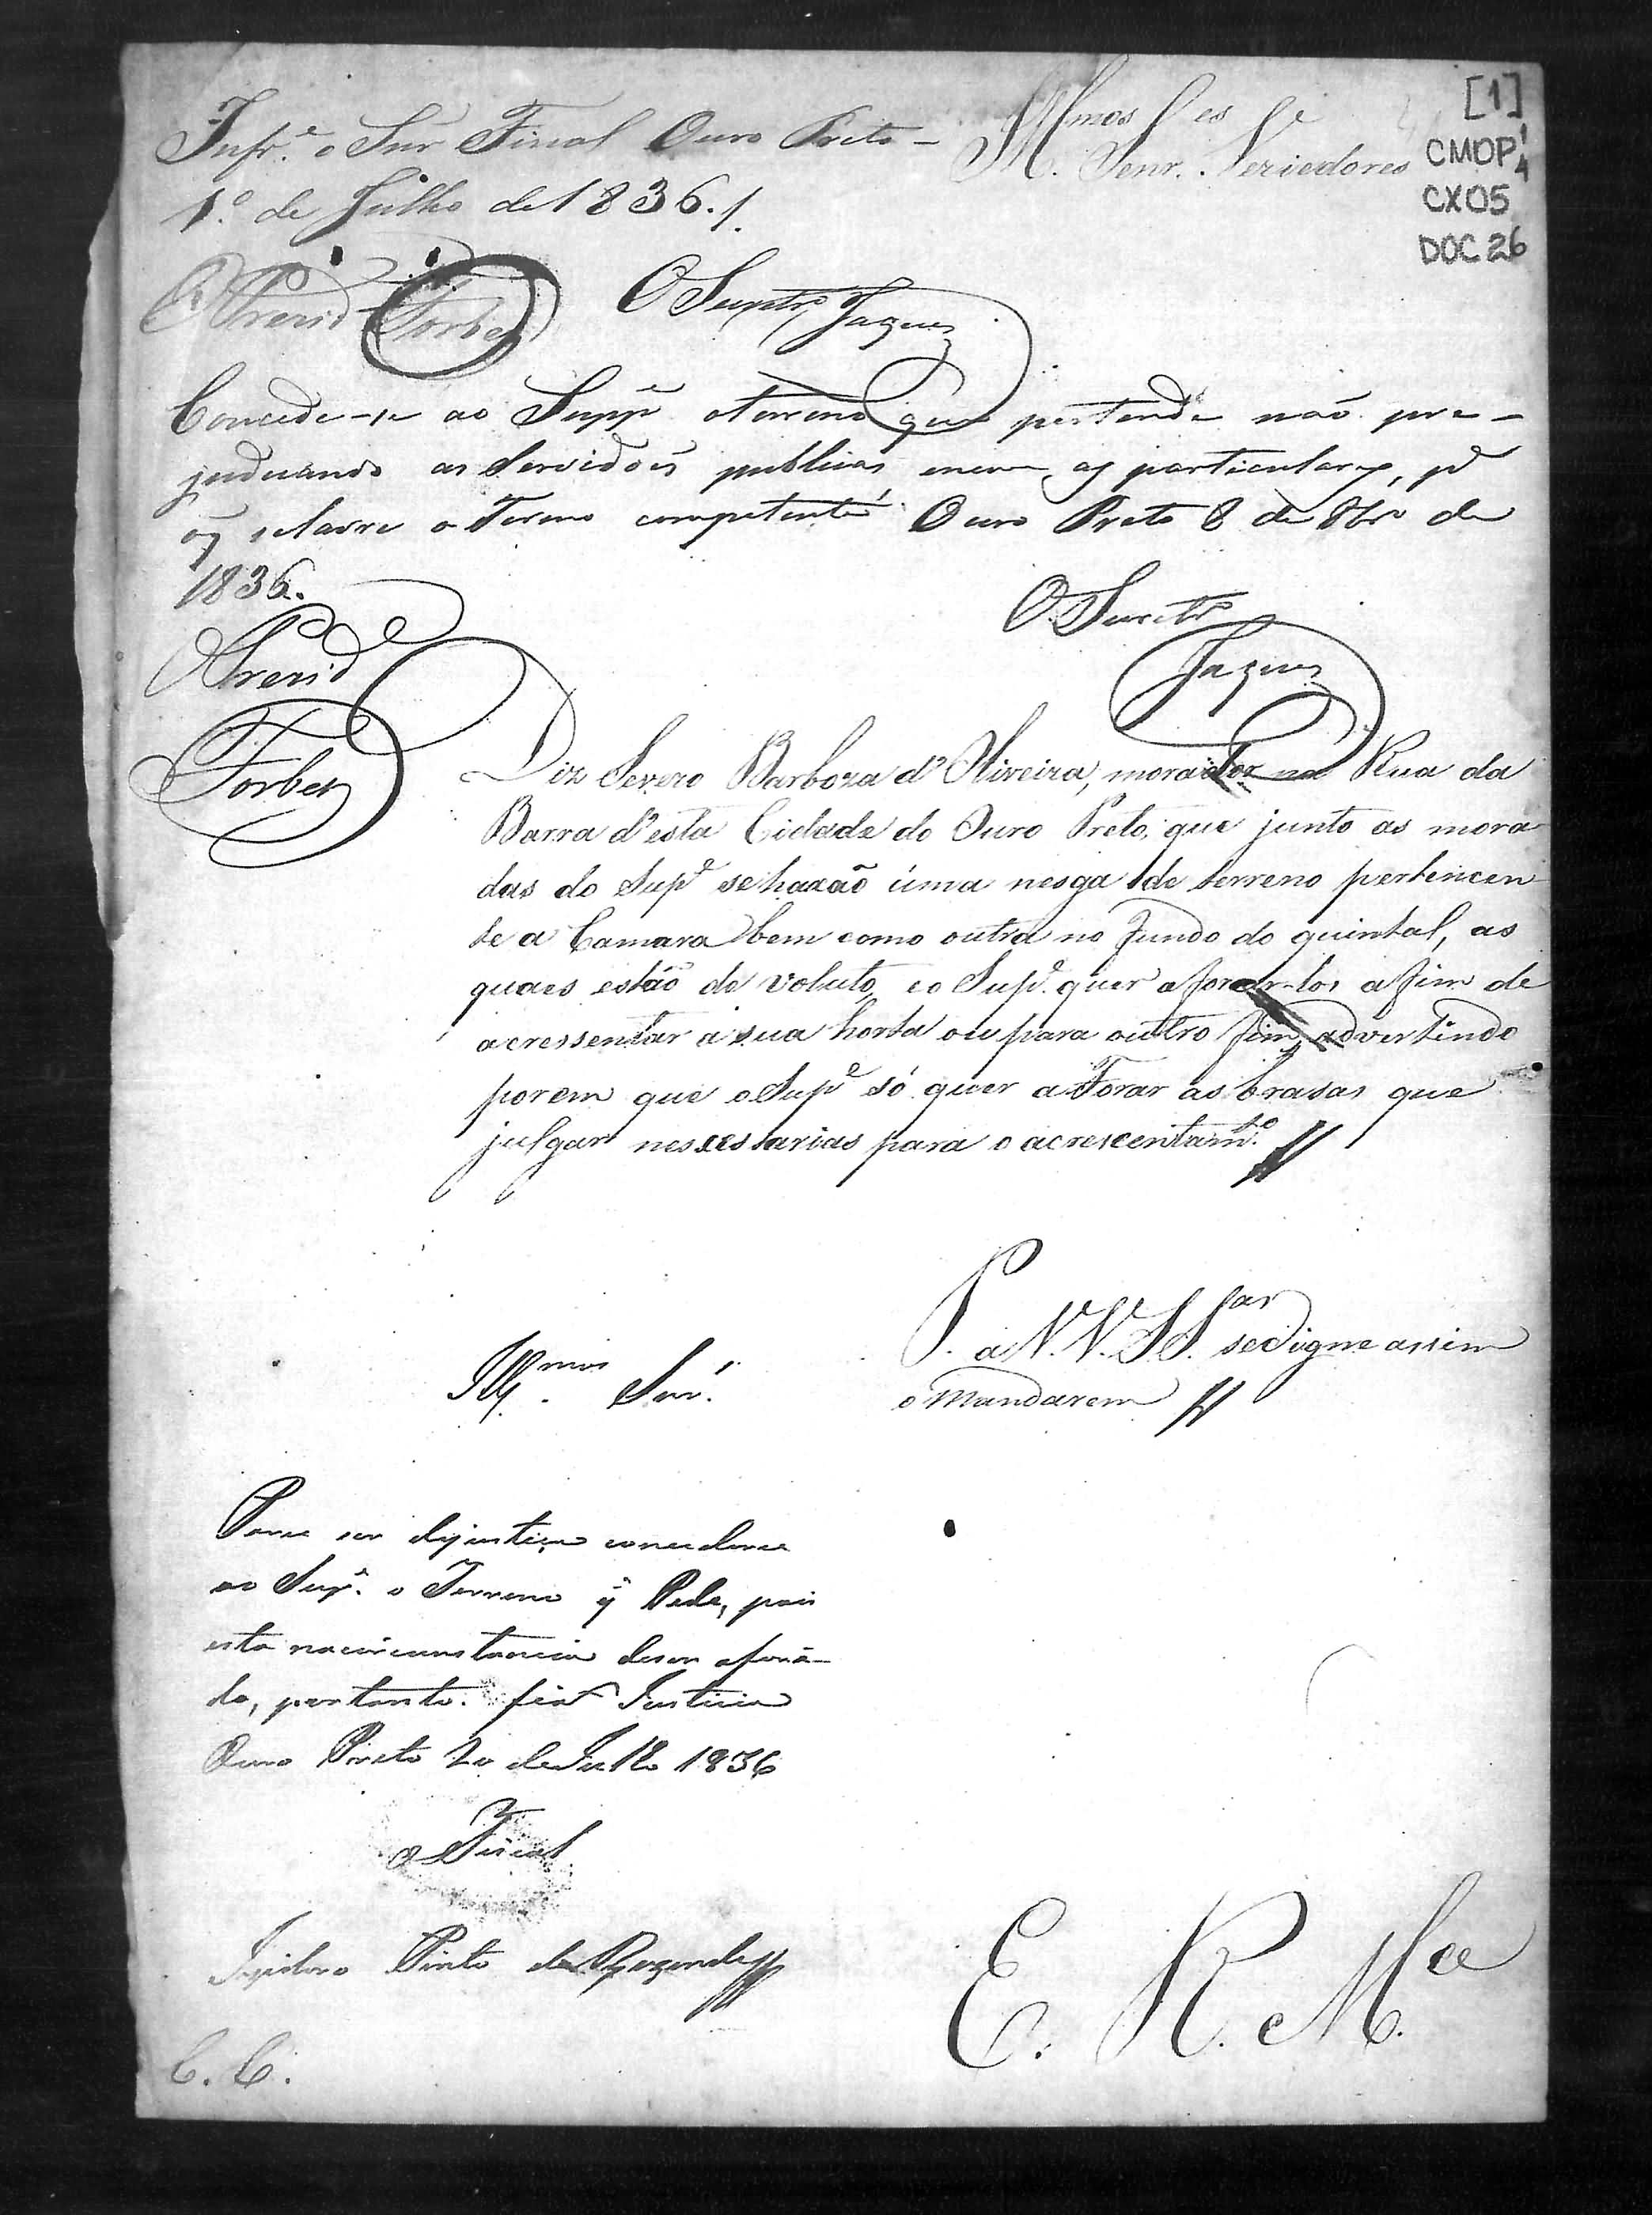 [1]
CMOP
CX05
DOC 26
Illmos Senr.es Veriedores
Infr.e o Snr Fiscal Ouro Preto -
1.º de Julho de 1836.
O Prezid.
Forbes
O Secretr.º Jaques
Concede-se ao Supp.e o terreno que pertende não pre-
judicando as servidoẽs publicas, nem as particulares, pª
o q̃ se lavre o Termo competente Ouro Preto 8 de 8brº de
1836.
O Prezid
Forbes
O Secretrº
Jaques
Diz Severo Barboza d'Oliveira, morador na Rua da
Barra d'esta Cidade do Ouro Preto, que junto as mora-
das do Sup.e se haxão úma nesga de terreno pertencen-
te a Camara bem como outra no fundo do quintal, as
quaes estão de voluto, e o Sup.e quer aforar-los afim de
acressentar a sua horta ou para outro fim, advertindo
porem que o Sup.e só quer a Forar as brasas que
julgar nessessarias para o acrescentam.to
P. a V.V. S.S.as se digne assim
o mandarem
Ill.mos Snr.
Parece ser de justiça concederce
ao Sup.e o Terreno q̃ Pede, pois
esta na circunstancia de ser afora-
do, portanto. fiat Justicia
Ouro Preto 20 de Julho 1836
O Fiscal
Izidoro Pinto de Rezende
E. R. M.ce
C. C.